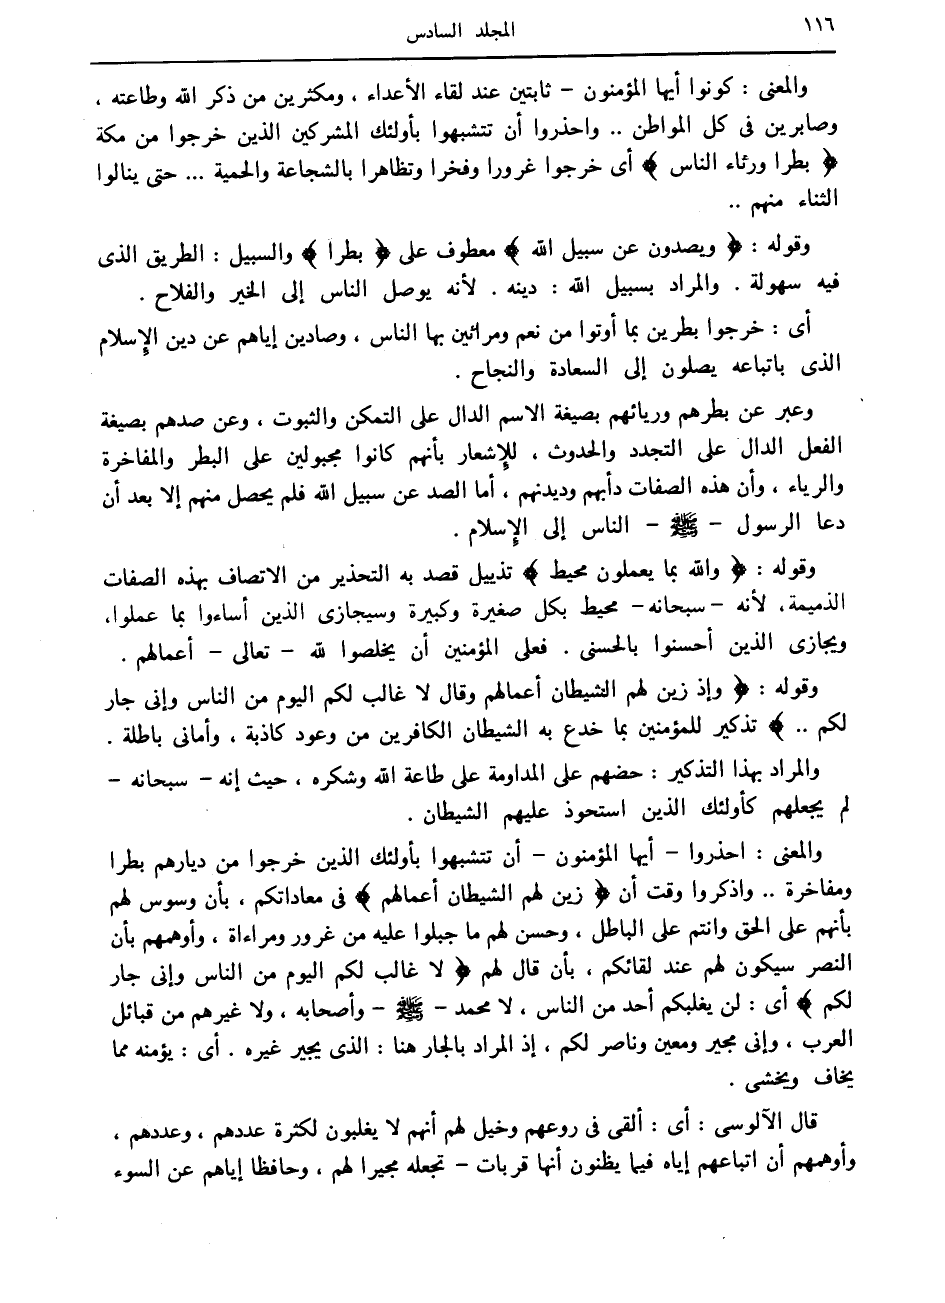 ١١٦
المجلد السادس
والمعنى : كونوا أيها المؤمنون – ثابتين عند لقاء الأعداء ، ومكثرين من ذكر الله وطاعته ،
وصابرين فى كل المواطن .. واحذروا أن تتشبهوا بأولئك المشركين الذين خرجوا من مكة
﴿ بطرا ورئاء الناس ﴾ أى خرجوا غرورا وفخرا وتظاهرا بالشجاعة والحمية ... حتى ينالوا
الثناء منهم ..
وقوله : ﴿ ويصدون عن سبيل الله ﴾ معطوف على ﴿ بطرا ﴾ والسبيل : الطريق الذى
فيه سهولة . والمراد بسبيل الله : دينه . لأنه يوصل الناس إلى الخير والفلاح .
أى : خرجوا بطرين بما أوتوا من نعم ومرائين بها الناس ، وصادين إياهم عن دين الإسلام
الذى باتباعه يصلون إلى السعادة والنجاح .
وعبر عن بطرهم وريائهم بصيغة الاسم الدال على التمكن والثبوت ، وعن صدهم بصيغة
الفعل الدال على التجدد والحدوث ، للإشعار بأنهم كانوا مجبولين على البطر والمفاخرة
والرياء ، وأن هذه الصفات دأبهم وديدنهم ، أما الصد عن سبيل الله فلم يحصل منهم إلا بعد أن
دعا الرسول – ﷺ – الناس إلى الإسلام .
وقوله : ﴿ والله بما يعملون محيط ﴾ تذييل قصد به التحذير من الاتصاف بهذه الصفات
الذميمة، لأنه –سبحانه– محيط بكل صغيرة وكبيرة وسيجازى الذين أساءوا بما عملوا،
ويجازى الذين أحسنوا بالحسنى . فعلى المؤمنين أن يخلصوا لله – تعالى – أعمالهم .
وقوله : ﴿ وإذ زين لهم الشيطان أعمالهم وقال لا غالب لكم اليوم من الناس وإنى جار
لكم .. ﴾ تذكير للمؤمنين بما خدع به الشيطان الكافرين من وعود كاذبة ، وأمانى باطلة .
والمراد بهذا التذكير : حضهم على المداومة على طاعة الله وشكره ، حيث إنه – سبحانه –
لم يجعلهم كأولئك الذين استحوذ عليهم الشيطان .
والمعنى : احذروا – أيها المؤمنون – أن تتشبهوا بأولئك الذين خرجوا من ديارهم بطرا
ومفاخرة .. واذكروا وقت أن ﴿ زين لهم الشيطان أعمالهم ﴾ فى معاداتكم ، بأن وسوس لهم
بأنهم على الحق وانتم على الباطل ، وحسن لهم ما جبلوا عليه من غرور ومراءاة ، وأوهمهم بأن
النصر سيكون لهم عند لقائكم ، بأن قال لهم ﴿ لا غالب لكم اليوم من الناس وإنى جار
لكم ﴾ أى : لن يغلبكم أحد من الناس ، لا محمد – ﷺ – وأصحابه ، ولا غيرهم من قبائل
العرب ، وإنى مجير ومعين وناصر لكم ، إذ المراد بالجار هنا : الذى يجير غيره . أى : يؤمنه مما
يخاف ويخشى .
قال الآلوسى : أى : ألقى فى روعهم وخيل لهم أنهم لا يغلبون لكثرة عددهم ، وعددهم ،
وأوهمهم أن اتباعهم إياه فيما يظنون أنها قربات – تجعله مجيرا لهم ، وحافظا إياهم عن السوء